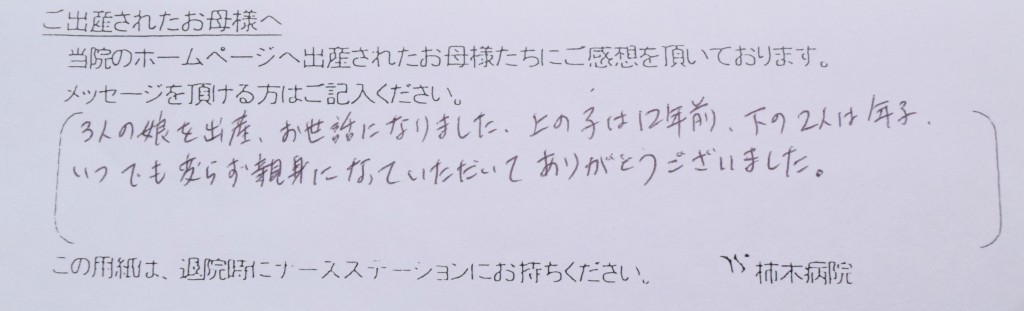 ご出産されたお母様へ
当院のホームページへ出産されたお母様たちにご感想を頂いております。
メッセージを頂ける方はご記入ください。
3人の娘を出産、お世話になりました。上の子は12年前、下の2人は年子、
いつでも変らず親身になっていただいてありがとうございました。
この用紙は、退院時にナースステーションにお持ちください。 柿木病院